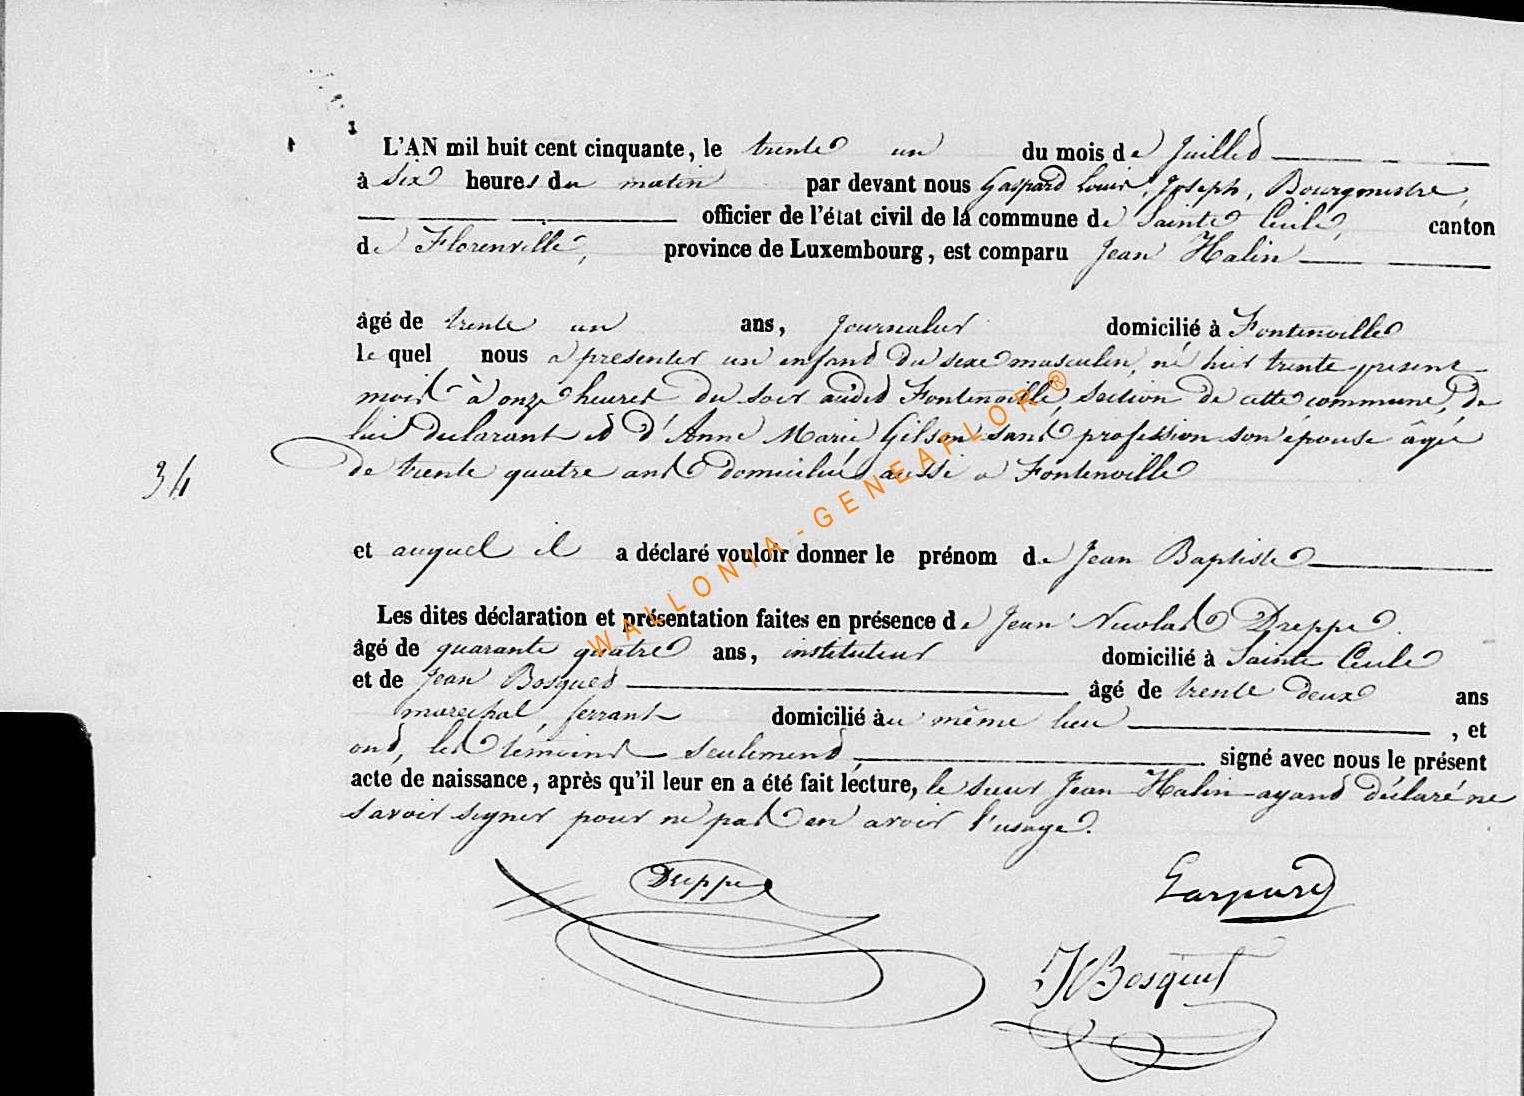 L'AN mil huit cent cinquante, le trente un du mois de Juillet
à six heures du matin par devant nous Gaspard Louis, Joseph, Bourgmestre,
officier de l'état civil de la commune de Sainte Cécile, canton
de Florenville, province de Luxembourg, est comparu Jean Halin
âgé de trente un ans, journalier domicilié à Fontenoille
le quel nous a présenter un enfant du sexe masculin, né hier trente present
mois à onze heures du soir audit Fontenoille, section de cette commune, de
lui declarant et d'Anne Marie Gilson sans profession son epouse âgée
de trente quatre ans domiciliée aussi a Fontenoille
34
et auquel il a déclaré vouloir donner le prénom de Jean Baptiste
Les dites déclaration et présentation faites en présence de Jean Nicolas Dreppe
âgé de quarante quatre ans, instituteur domicilié à Sainte Cécile
et de Jean Bosquet âgé de trente deux ans
marechal ferrant domicilié au même lieu, et
ont, les témoins seulement, signé avec nous le présent
acte de naissance, après qu'il leur en a été fait lecture, le sieur Jean Halin ayant déclaré ne
savoir signer pour ne pas en avoir l'usage.
Dreppe
Gaspard
Bosquet
WALLONIA-GENEAFLOR®